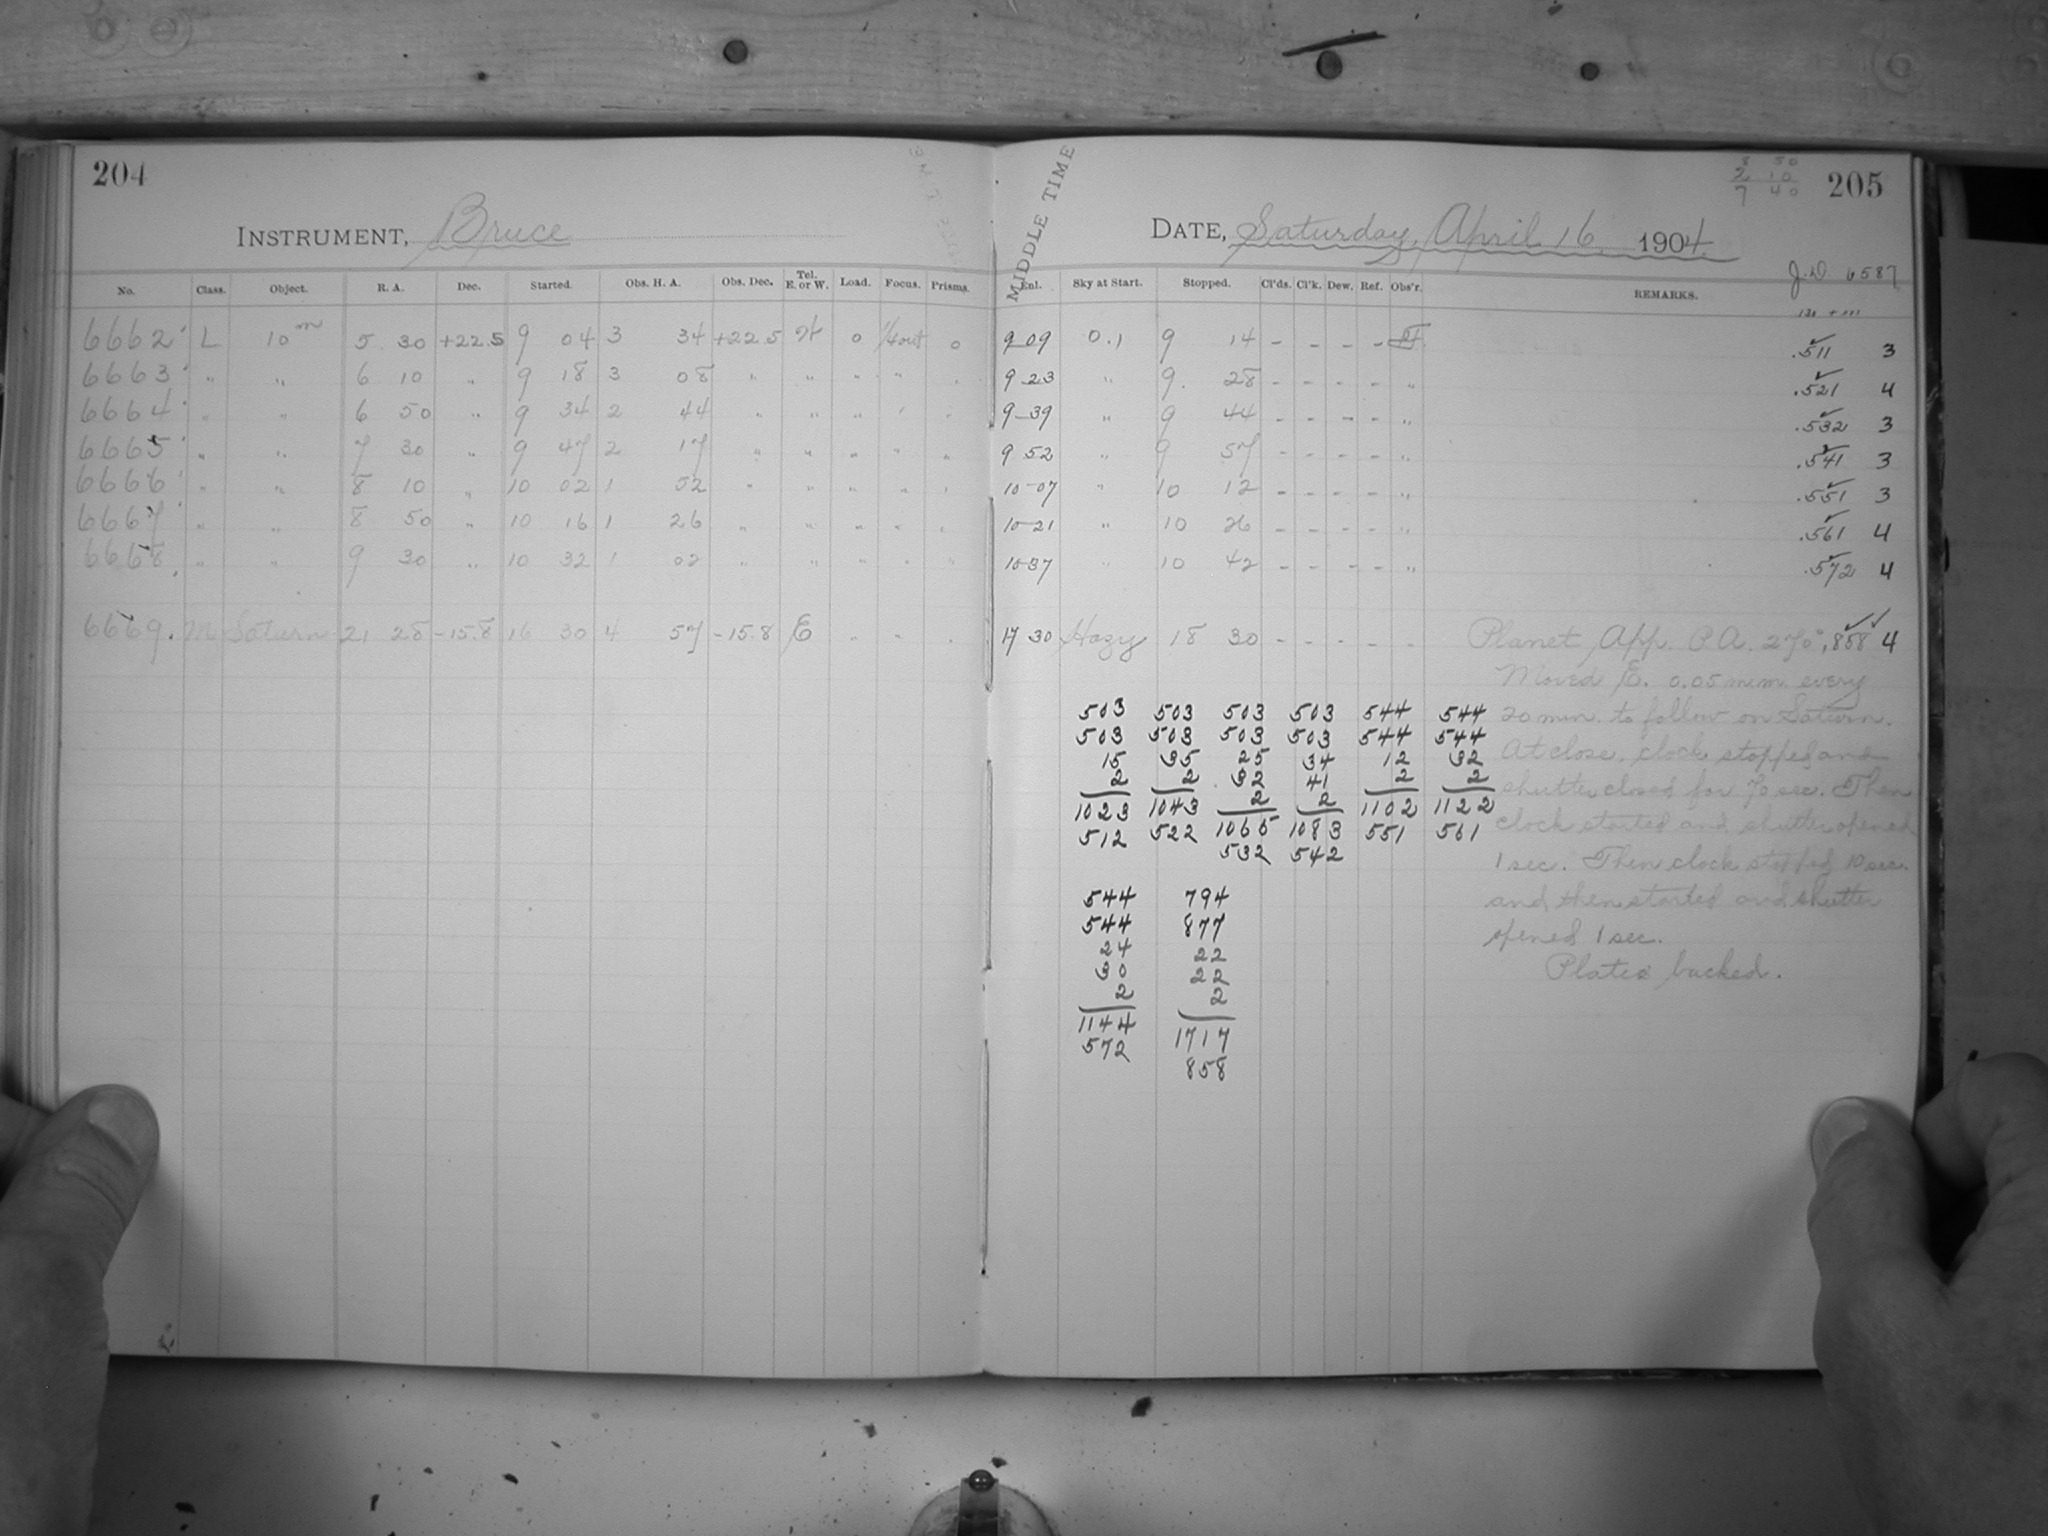 204
INSTRUMENT, Bruce
No. Class. Object. R. A. Dec. Started. Obs. H. A. Obs. Dec. Tel. E. or W. Load. Focus. Prisms.
6662 L 10m 5 30 +22.5 9 04 3 34 +22.5 W 0 1/4 out 0
6663 " " 6 10 " 9 18 3 08 " " " " "
6664 " " 6 50 " 9 34 2 44 " " " " "
6665 " " 7 30 " 9 47 2 17 " " " " "
6666 " " 8 10 " 10 02 1 52 " " " " "
6667 " " 8 50 " 10 16 1 26 " " " " "
6668 " " 9 30 " 10 32 1 02 " " " " "
6669. M Saturn 21 28 -15.8 16 30 4 57 -15.8 E " " "
MIDDLE TIME
8 50
2 10
7 40
205
DATE, Saturday, April 16. 1904.
J.D 6587
Enl. Sky at Start. Stopped. Cl'ds. Cl'k. Dew. Ref. Obs'r. REMARKS.
9-09 0.1 9 14 - - - - .511 3
9-23 " 9. 28 - - - - " .521 4
9-39 " 9 44 - - - - " .532 3
9 52 " 9 57 - - - - " .541 3
10-07 " 10 12 - - - - " .551 3
10-21 " 10 26 - - - - " .561 4
10-37 " 10 42 - - - - " .572 4
17 30 Hazy 18 30 - - - - - Planet App. P.A. 270°, .858 4
Moved E. 0.05 m.m. every
20 min. to follow on Saturn.
At close, clock stopped and
shutter closed for 70 sec. Then
clock started and shutter opened
1 sec. Then clock stopped 10 sec.
and then started and shutter
opened 1 sec.
Plates backed.
503 503 503 503 544 544
503 503 503 503 544 544
15 35 25 34 12 32
2 2 32 41 2 2
1023 1043 2 2 1102 1122
512 522 1065 1083 551 561
532 542
544 794
544 877
24 22
30 22
2 2
1144 1717
572 858